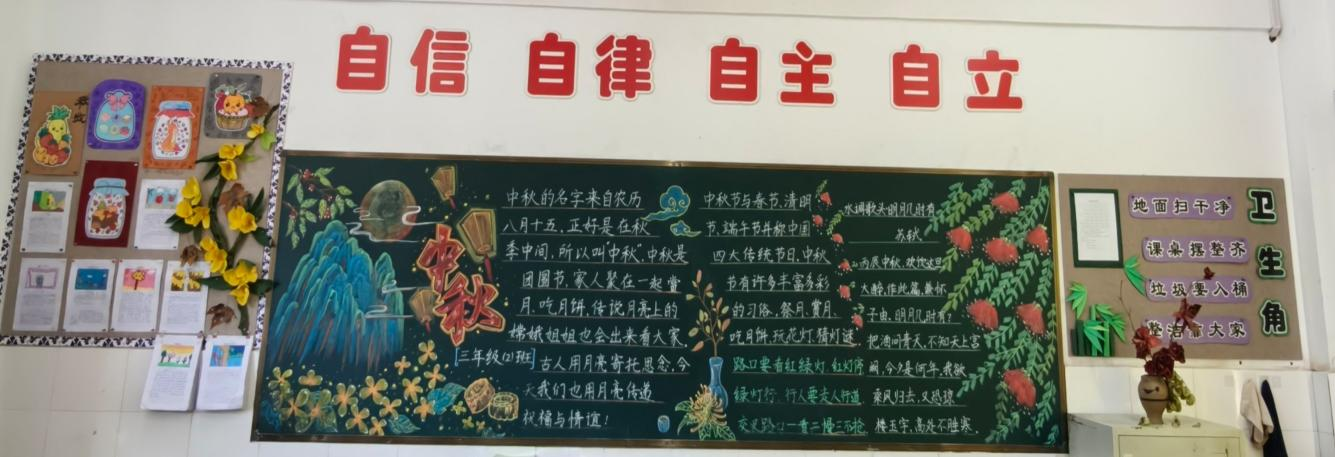 自信 自律 自主 自立
中秋
三年级(2)班
中秋的名字来自农历
八月十五,正好是在秋
季中间,所以叫"中秋".中秋是
团圆节,家人聚在一起赏
月,吃月饼,传说月亮上的
嫦娥姐姐也会出来看大家
古人用月亮寄托思念,今
天我们也用月亮传递
祝福与情谊!
中秋节与春节、清明
节、端午节并称中国
四大传统节日,中秋
节有许多丰富多彩
的习俗,祭月、赏月、
吃月饼、玩花灯、猜灯谜
路口要看红绿灯,红灯停
绿灯行,行人要走人行道
交叉路口一看二慢三不抢
水调歌头·明月几时有
苏轼
丙辰中秋,欢饮达旦
大醉,作此篇,兼怀
子由.明月几时有?
把酒问青天,不知天上宫
阙,今夕是何年,我欲
乘风归去,又恐琼
楼玉宇,高处不胜寒,
卫生角
地面扫干净
课桌摆整齐
垃圾要入桶
整洁靠大家